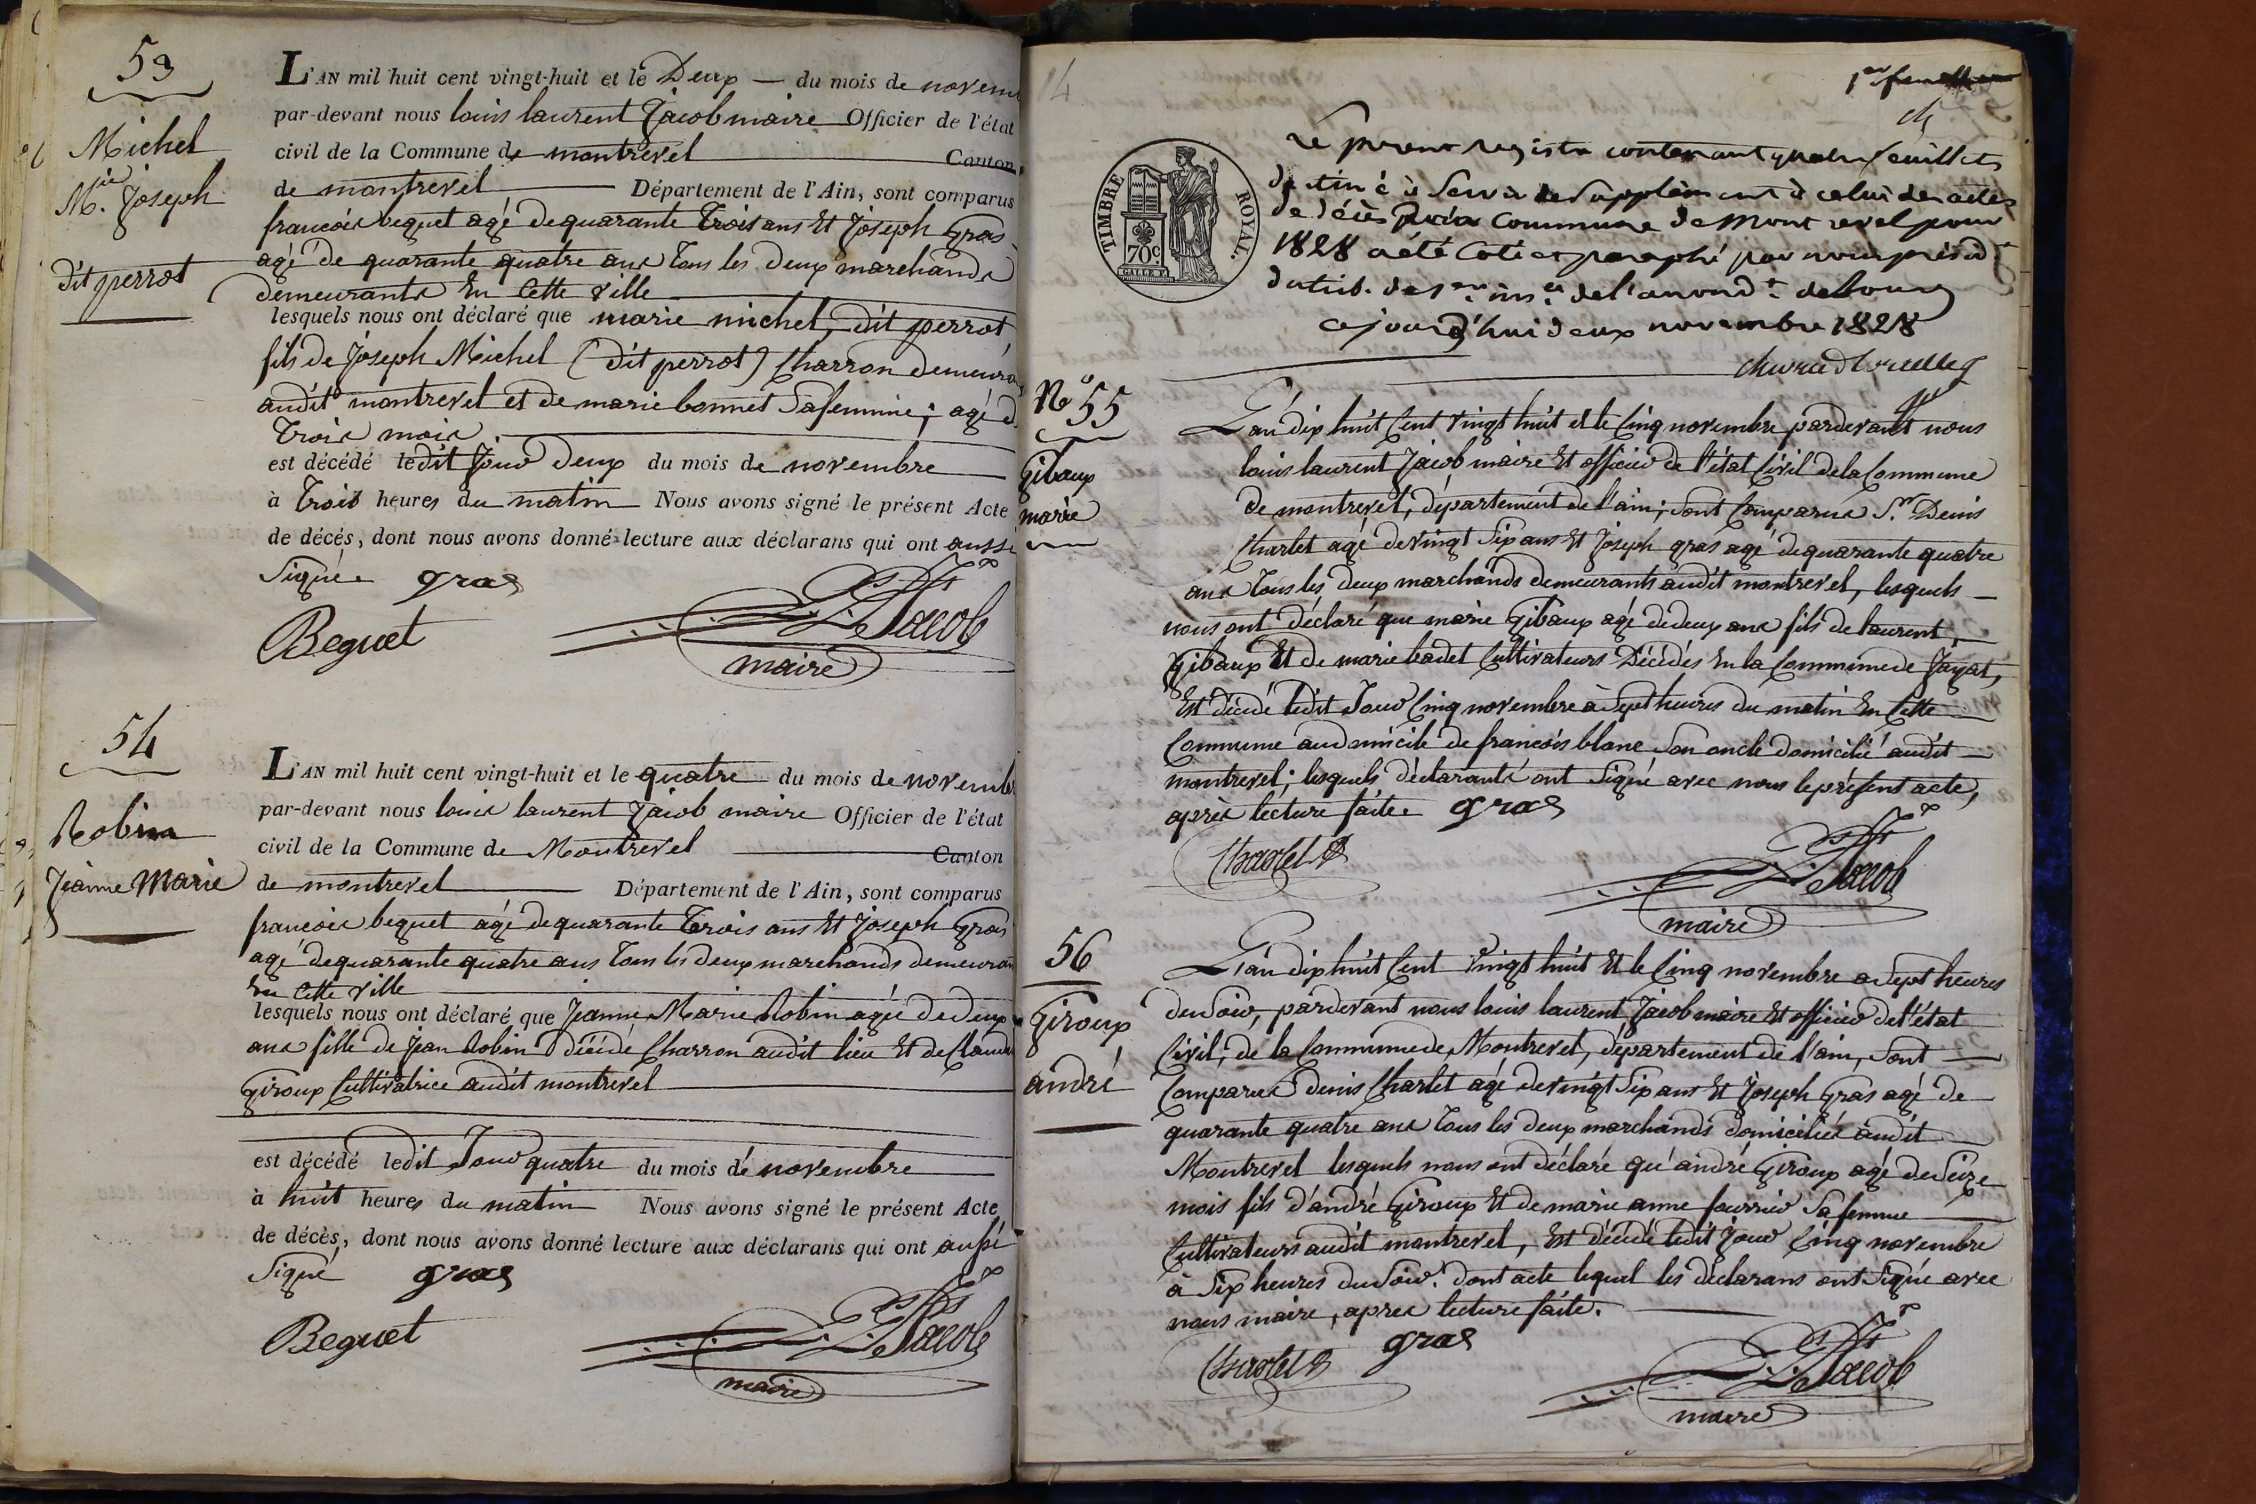 53
Michel
Mie. Joseph
dit perrot
L'AN mil huit cent vingt-huit et le Deux du mois de novem
par-devant nous louis laurent Jacob maire Officier de l'état
civil de la Commune de montrevel Canton
de montrevel Département de l'Ain, sont comparus
francois beguet agé de quarante trois ans Et Joseph Gras
agé de quarante quatre ans tous les deux marchands
demeurants En Cette ville
lesquels nous ont déclaré que marie michel, dit perrot
fils de Joseph Michel (dit perrot) Charron demeura
audit montrevel et de marie bonnet Safemme; agé d
trois mois
est décédé ledit Jour deux du mois de novembre
à trois heures du matin Nous avons signé le présent Acte
de décès, dont nous avons donné lecture aux déclarans qui ont aussi
Signé gras
Beguet
L. L. Jacob
maire
54
Robin
Jeanne Marie
L'AN mil huit cent vingt-huit et le quatre du mois de novemb
par-devant nous louis laurent Jacob maire Officier de l'état
civil de la Commune de Montrevel Canton
de montrevel Département de l'Ain, sont comparus
francois beguet agé de quarante trois ans Et Joseph Gras
agé de quarante quatre ans tous les deux marchands demeuran
En Cette ville
lesquels nous ont déclaré que Jeanne Marie Robin agée de deux
ans fille de Jean Robin décédé Charron audit lieu Et de Claud
Giroux Cultivatrice audit montrevel
est décédé ledit Jour quatre du mois de novembre
à huit heures du matin Nous avons signé le présent Acte
de décès, dont nous avons donné lecture aux déclarans qui ont aussi
Signé gras
Beguet
L. L. Jacob
maire
14
1er
TIMBRE ROYAL.
70c
Le present registre contenant quatre feuillets
destiné à Servir de Supplément à celui des actes
de décès de la Commune de Mont revel pour
1828 a été Coté et paraphé par nous présidt
du trib. de 1ere insce de l'arrondt de bourg
ce jourd'hui deux novembre 1828
No 55
Gibaux
marie
L'an dix huit Cent vingt huit et le Cinq novembre pardevant nous
louis laurent Jacob maire Et officier de l'état Civil de la Commune
de montrevel, département de l'ain; sont Comparus Sr. Denis
Charlet agé de vingt Six ans Et Joseph gras agé de quarante quatre
ans tous les deux marchands demeurants audit montrevel, lesquels
nous ont déclaré que marie Gibaux agé de deux ans fils de laurent
Gibaux Et de marie badet Cultivateurs Décédés En la Commune de Jayat,
Est décédé ledit Jour Cinq novembre à Sept heures du matin En Cette
Commune au domicile de francois blanc Son oncle domicilié audit
montrevel; lesquels déclarants ont Signé avec nous le présent acte,
après lecture faite. gras
Charlet
L. L. Jacob
maire
56
Giroux
andré
L'an dix huit Cent vingt huit Et le Cinq novembre a Sept heures
du Soir, pardevant nous louis laurent Jacob maire Et officier de l'état
Civil; de la Commune de Montrevel, département de l'ain, Sont
Comparus denis Charlet agé de vingt Six ans Et Joseph Gras agé de
quarante quatre ans tous les deux marchands domiciliés audit
Montrevel lesquels nous ont déclaré qu'andré Giroux agé de Seize
mois fils d'andré Giroux Et de marie anne fourrier Sa femme
Cultivateurs audit montrevel, Est décédé ledit Jour Cinq novembre
à Six heures du Soir. dont acte lequel les déclarans ont Signé avec
nous maire, apres lecture faite.
Charlet gras
L. L. Jacob
maire